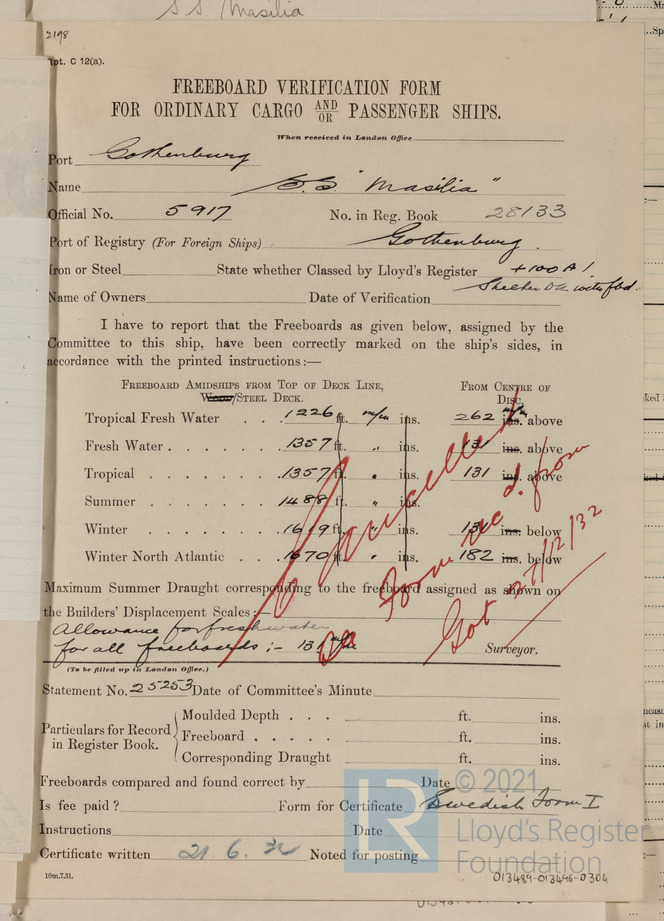 SS Masilia
2198
pt. C 12(a).
FREEBOARD VERIFICATION FORM
FOR ORDINARY CARGO AND/OR PASSENGER SHIPS.
When received in London Office
Port Gothenburg
Name S.S "Masilia"
Official No. 5917 No. in Reg. Book 28133
Port of Registry (For Foreign Ships) Gothenburg.
Iron or Steel State whether Classed by Lloyd's Register +100A1.
Shelter Dk with fbd.
Name of Owners Date of Verification
I have to report that the Freeboards as given below, assigned by the
Committee to this ship, have been correctly marked on the ship's sides, in
accordance with the printed instructions:—
FREEBOARD AMIDSHIPS FROM TOP OF DECK LINE, FROM CENTRE OF
Wood/STEEL DECK. DISC.
Tropical Fresh Water . . . 1226 ft. m/m ins. 262 m/m ins. above
Fresh Water . . . . . . 1357 ft. " ins. 131 ins. above
Tropical . . . . . . 1357 ft. " ins. 131 ins. above
Summer . . . . . . 1488 ft. " ins.
Winter . . . . . . 1619 ft. " ins. 131 ins. below
Winter North Atlantic . . . 1670 ft. " ins. 182 ins. below
Cancelled
as Form rec'd. from
Got 27/12/32
Maximum Summer Draught corresponding to the freeboard assigned as shown on
the Builders' Displacement Scales:—
Allowance for fresh water
for all freeboards :- 131 m/m
Surveyor.
(To be filled up in London Office.)
Statement No. 25253 Date of Committee's Minute
Particulars for Record in Register Book.
Moulded Depth . . . ft. ins.
Freeboard . . . . . ft. ins.
Corresponding Draught ft. ins.
Freeboards compared and found correct by Date
Is fee paid ? Form for Certificate Swedish Form I
Instructions Date
Certificate written 21.6.32 Noted for posting
10m,7,31.
LR
© 2021
Lloyd's Register
Foundation
013489-013496-0304